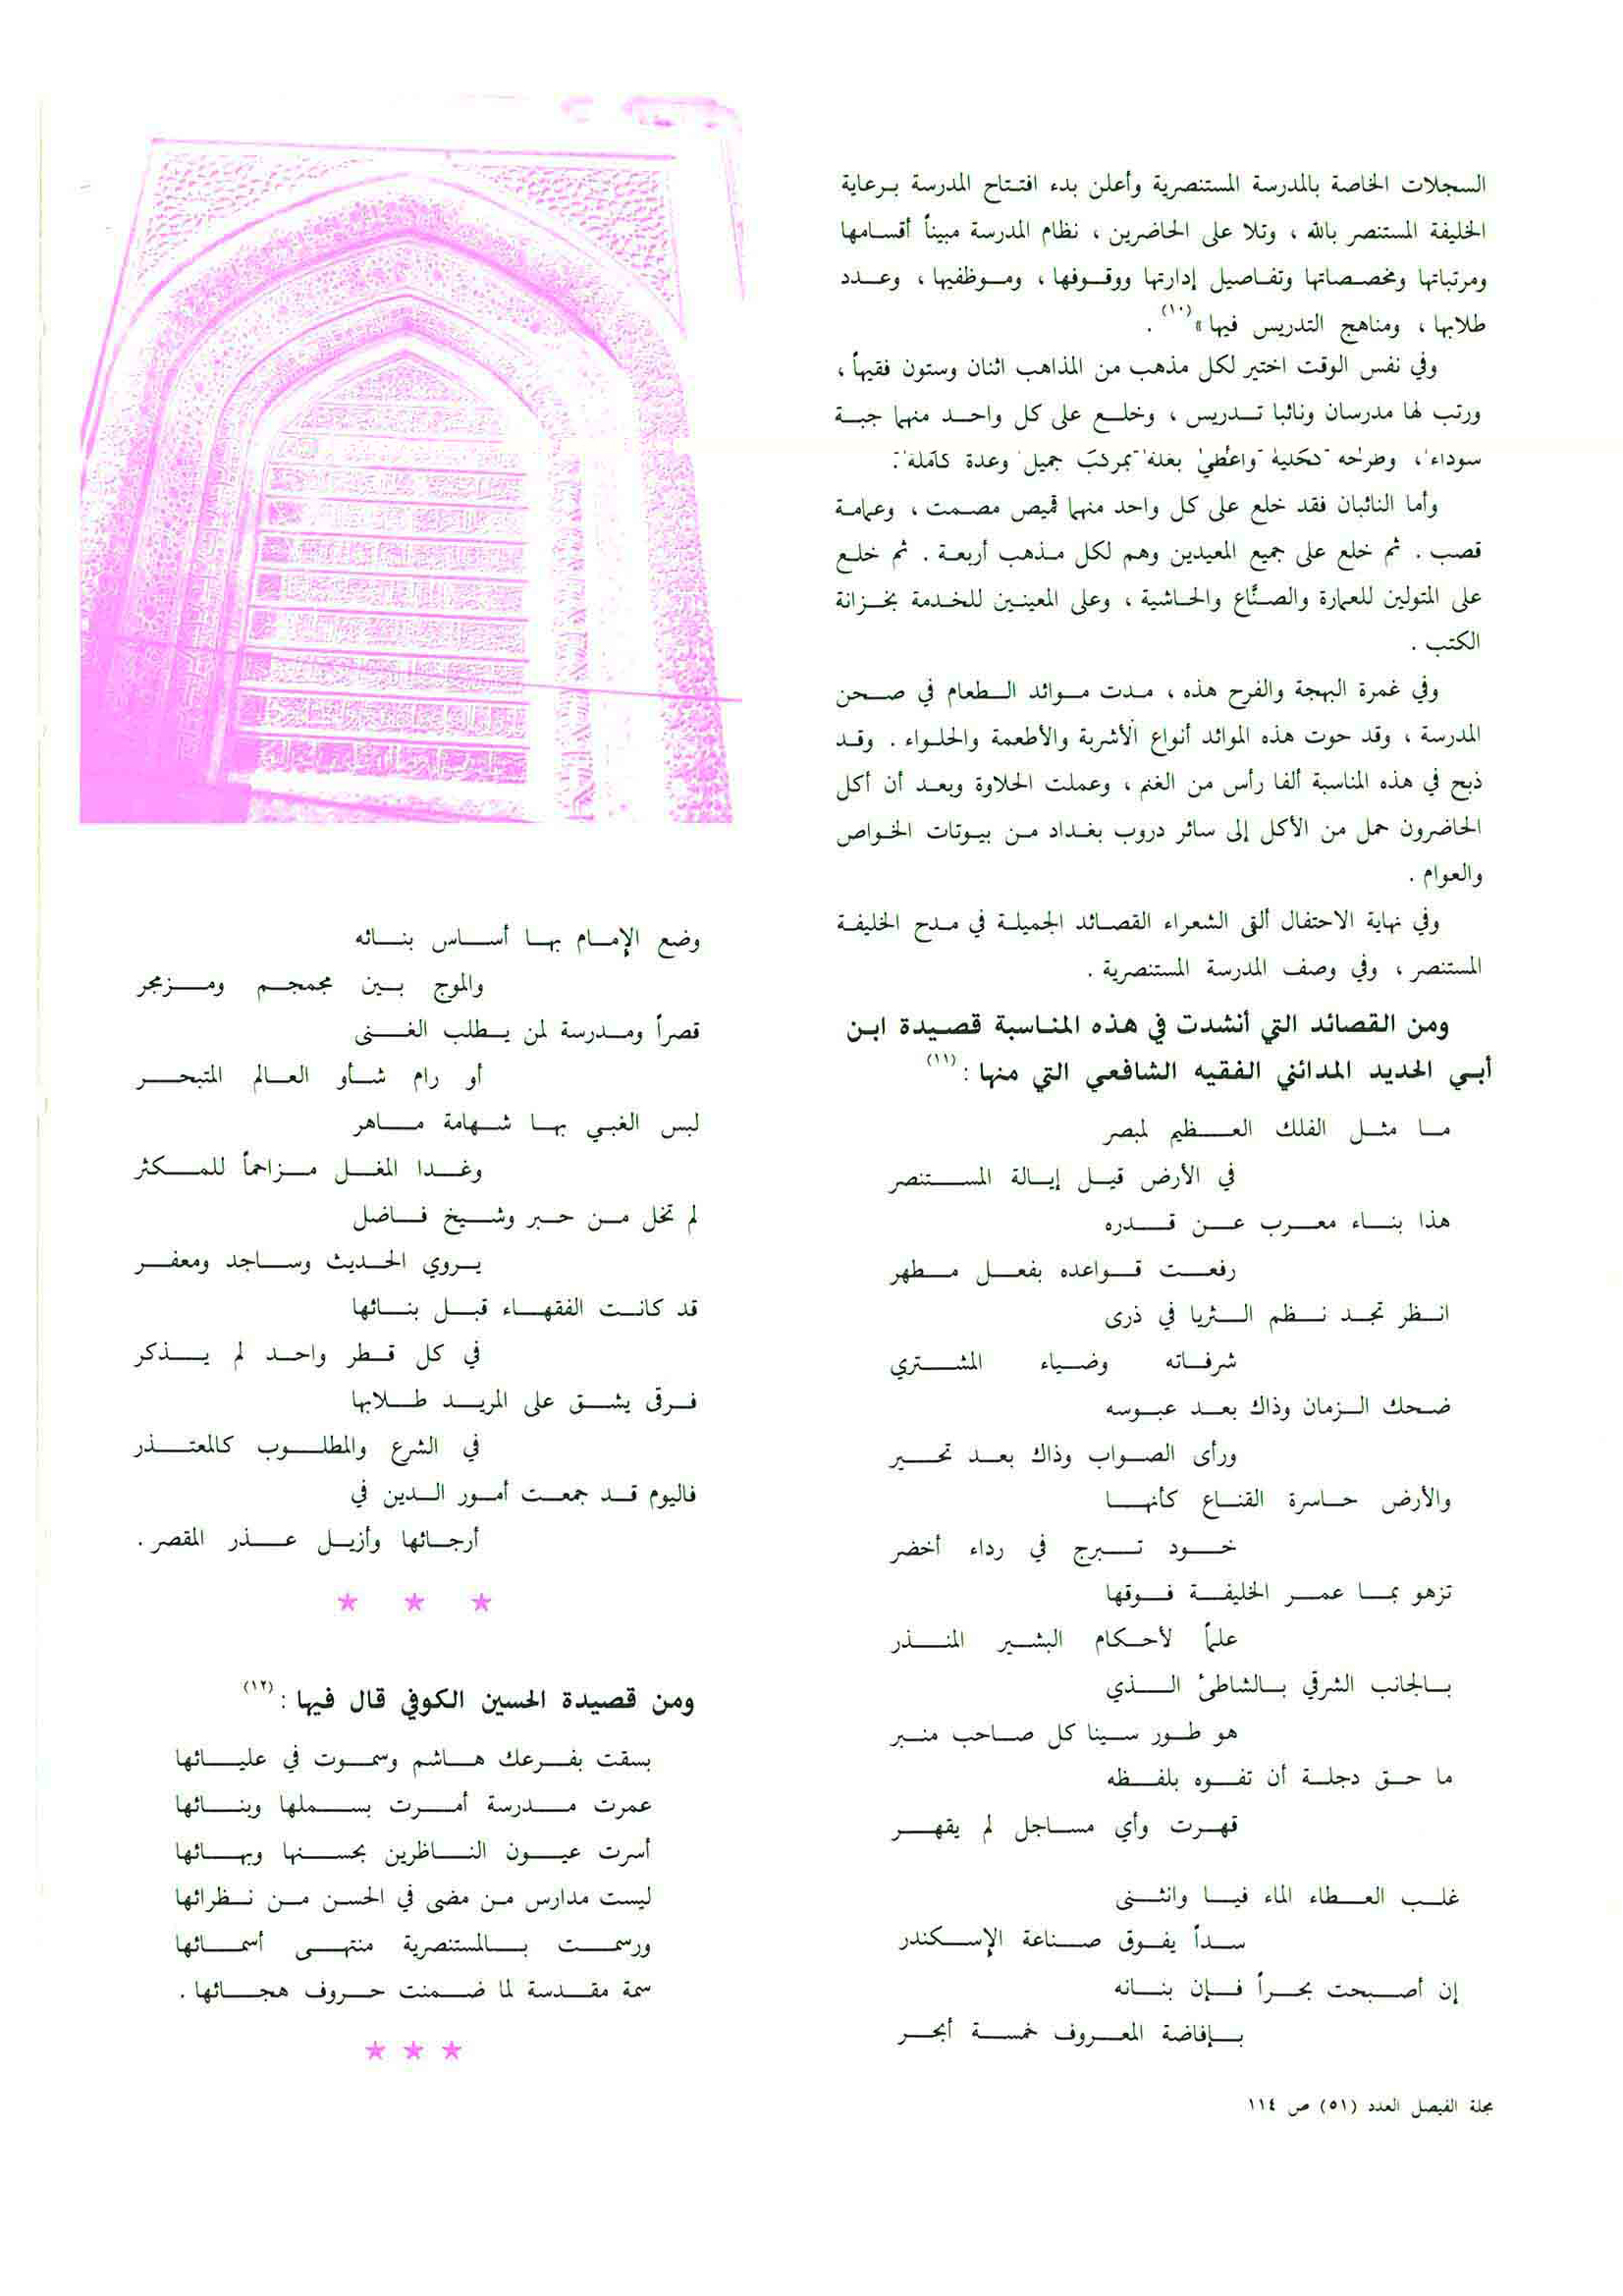 السجلات الخاصة بالمدرسة المستنصرية وأعلن بدء افتتاح المدرسة برعاية
الخليفة المستنصر بالله ، وتلا على الحاضرين ، نظام المدرسة مبيناً أقسامها
ومرتباتها ومخصصاتها وتفاصيل إدارتها ووقوفها ، وموظفيها ، وعدد
طلابها ، ومناهج التدريس فيها »(١٠) .
وفي نفس الوقت اختير لكل مذهب من المذاهب اثنان وستون فقيهاً ،
ورتب لها مدرسان ونائبا تدريس ، وخلع على كل واحد منهما جبة
سوداء ، وطرحه كحلية واعطي بغلة بمركب جميل وعدة كاملة .
وأما النائبان فقد خلع على كل واحد منهما قميص مصمت ، وعمامة
قصب . ثم خلع على جميع المعيدين وهم لكل مذهب أربعة . ثم خلع
على المتولين للعمارة والصنَّاع والحاشية ، وعلى المعينين للخدمة بخزانة
الكتب .
وفي غمرة البهجة والفرح هذه ، مدت موائد الطعام في صحن
المدرسة ، وقد حوت هذه الموائد أنواع الأشربة والأطعمة والحلواء . وقد
ذبح في هذه المناسبة ألفا رأس من الغنم ، وعملت الحلاوة وبعد أن أكل
الحاضرون حمل من الأكل إلى سائر دروب بغداد من بيوتات الخواص
والعوام .
وفي نهاية الاحتفال ألقى الشعراء القصائد الجميلة في مدح الخليفة
المستنصر ، وفي وصف المدرسة المستنصرية .
ومن القصائد التي أنشدت في هذه المناسبة قصيدة ابن
أبي الحديد المدائني الفقيه الشافعي التي منها :(١١)
ما مثل الفلك العظيم لمبصر
في الأرض قيل إيالة المستنصر
هذا بناء معرب عن قدره
رفعت قواعده بفعل مطهر
انظر تجد نظم الثريا في ذرى
شرفاته وضياء المشتري
ضحك الزمان وذاك بعد عبوسه
ورأى الصواب وذاك بعد تحير
والأرض حاسرة القناع كأنها
خود تبرج في رداء أخضر
تزهو بما عمر الخليفة فوقها
علماً لأحكام البشير المنذر
بالجانب الشرقي بالشاطئ الذي
هو طور سينا كل صاحب منبر
ما حق دجلة أن تفوه بلفظه
قهرت وأي مساجل لم يقهر
غلب العطاء الماء فيها وانثنى
سداً يفوق صناعة الإسكندر
إن أصبحت بحراً فإن بنانه
بإفاضة المعروف خمسة أبحر
وضع الإمام بها أساس بنائه
والموج بين مجمجم ومزمجر
قصراً ومدرسة لمن يطلب الغنى
أو رام شأو العالم المتبحر
لبس الغبي بها شهامة ماهر
وغدا المغل مزاحماً للمكثر
لم تخل من حبر وشيخ فاضل
يروي الحديث وساجد ومعفر
قد كانت الفقهاء قبل بنائها
في كل قطر واحد لم يذكر
فرقى يشق على المريد طلابها
في الشرع والمطلوب كالمعتذر
فاليوم قد جمعت أمور الدين في
أرجائها وأزيل عذر المقصر .
ومن قصيدة الحسين الكوفي قال فيها :(١٢)
بسقت بفرعك هاشم وسموت في عليائها
عمرت مدرسة أمرت بسملها وبنائها
أسرت عيون الناظرين بحسنها وبهائها
ليست مدارس من مضى في الحسن من نظرائها
ورسمت بالمستنصرية منتهى أسمائها
سمة مقدسة لما ضمنت حروف هجائها .
مجلة الفيصل العدد (٥١) ص ١١٤